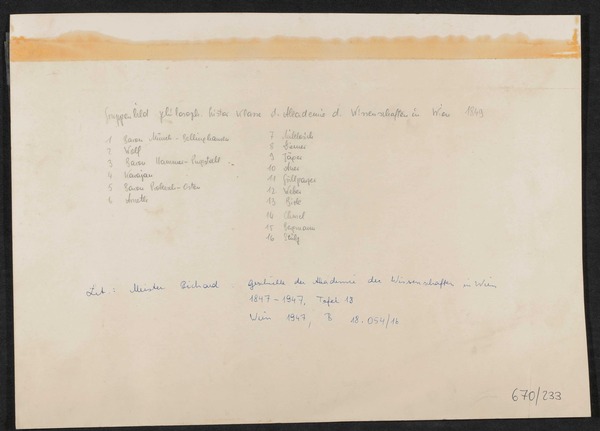 Gruppenbild philosoph. histor Klasse d. Akademie d. Wissenschaften in Wien 1849
1 Baron Münch-Bellinghausen
2 Wolf
3 Baron Hammer-Purgstall
4 Karajan
5 Baron Prokesch-Osten
6 Arneth
7 Miklosich
8 Diemer
9 Jäger
10 Auer
11 Grillparzer
12 Weber
13 Birk
14 Chmel
15 Bergmann
16 Stülz
Lit.: Meister Richard Geschichte der Akademie der Wissenschaften in Wien
1847-1947, Tafel 18
Wien 1947, B 18.094/16
670/233